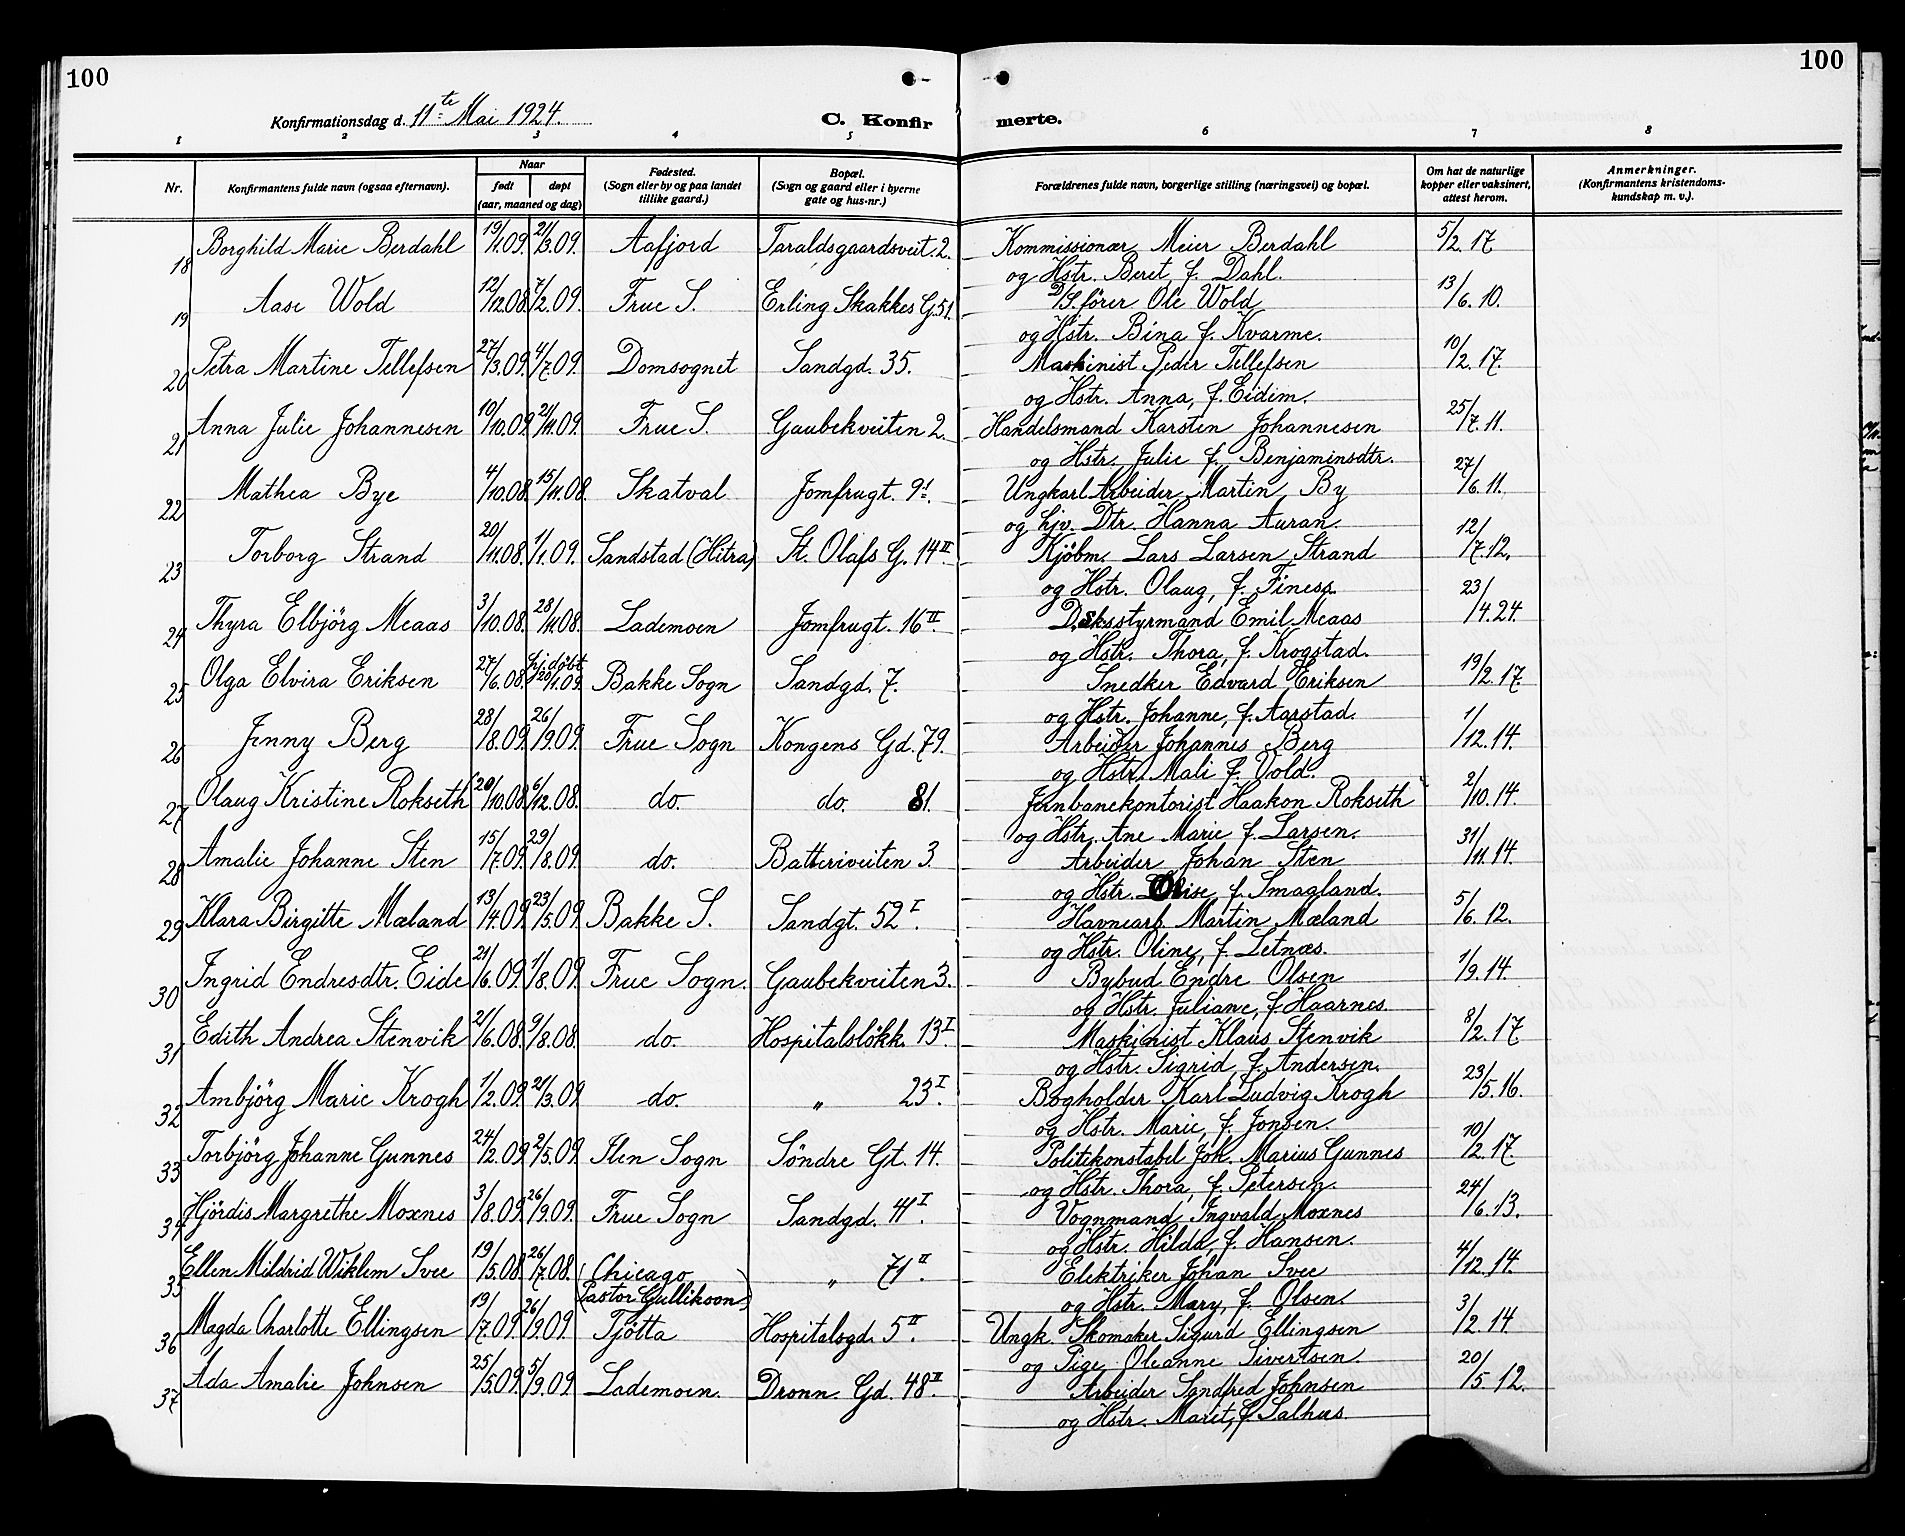 100
100
Konfirmationsdag d. 11te Mai 1924.
C. Konfirmerte.
1 2 3 4 5 6 7 8
Nr.
Konfirmantens fulde navn (ogsaa efternavn).
Naar
født
døpt
(aar, maaned og dag)
Fødested.
(Sogn eller by og paa landet
tillike gaard.)
Bopæl.
(Sogn og gaard eller i byerne
gate og hus-nr.)
Forældrenes fulde navn, borgerlige stilling (næringsvei) og bopæl.
Om hat de naturlige
kopper eller vaksinert,
attest herom.
Anmerkninger.
(Konfirmantens kristendoms-
kundskap m. v.).
18 Borghild Marie Berdahl 19/1.09. 21/3.09. Aafjord Taraldsgaardsveit. 2. Kommissionær Meier Berdahl 5/2. 17
og Hstr. Beret, f. Dahl.
19 Aase Wold 12/12.08. 7/2.09. Frue S. Erling Skakkes G. 51. D/S. förer Ole Wold 13/6. 10.
og Hstr. Bina f. Kvarme.
20 Petra Martine Tellefsen 27/3.09. 4/7.09. Domsognet Sandgd. 35. Maskinist Peder Tellefsen 10/2. 17.
og Hstr. Anna, f. Eidem.
21 Anna Julie Johannesen 10/10.09. 21/11.09. Frue S. Gaubekveiten 2. Handelsmand Karsten Johannesen 25/7. 11.
og Hstr. Julie f. Benjaminsdtr.
22 Mathea Bye 4/10.08. 15/11.08. Skatval Jomfrugt. 9I. Ungkarl Arbeider Martin By 27/6. 11.
og hjv. Dtr. Hanna Auran.
23 Torborg Strand 20/11.08. 1/1.09. Sandstad (Hitra) St. Olafs G. 14II. Kjöbm. Lars Larsen Strand 12/7. 12.
og Hstr. Olaug, f. Finess.
24 Thyra Elbjörg Meaas 3/10.08. 28/11.08. Lademoen Jomfrugt. 16II. D.sksstyrmand Emil Meaas 23/4. 24.
og Hstr. Thora, f. Krogstad.
25 Olga Elvira Eriksen 27/6.08. hj. döbt 20/1.09. Bakke Sogn Sandgd. 7. Snedker Edvard Eriksen 19/2. 17.
og Hstr. Johanne, f. Aarstad.
26 Jenny Berg 28/8.09. 26/9.09. Frue Sogn Kongens Gd. 79. Arbeider Johannes Berg 1/12. 14.
og Hstr. Mali f. Vold.
27 Olaug Kristine Rokseth 20/10.08. 6/12.08. do. do. 81. Jernbanekontorist Haakon Rokseth 2/10. 14.
og Hstr. Ane Marie f. Larsen.
28 Amalie Johanne Sten 15/7.09. 29/8.09. do. Batteriveiten 3. Arbeider Johan Sten 31/11. 14.
og Hstr. f. Smagland.
29 Klara Birgitte Mæland 13/4.09. 23/5.09. Bakke S. Sandgt. 52I. Havnearb. Martin Mæland 5/6. 12.
og Hstr. Oline, f. Letnæs.
30 Ingrid Endresdtr. Eide 21/6.09. 1/8.09. Frue Sogn. Gaubekveiten 3. Bybud Endre Olsen 1/9. 14.
og Hstr. Juliane, f. Haarnes.
31 Edith Andrea Stenvik 21/6.08. 9/8.08. do. Hospitalslökk. 13I. Maskinist Klaus Stenvik 8/2. 17.
og Hstr. Sigrid, f. Andersen.
32 Ambjörg Marie Krogh 1/2.09. 21/3.09. do. „ 23I. Bogholder Karl Ludvig Krogh 23/5. 16.
og Hstr. Marie, f. Jonsen.
33 Torbjörg Johanne Gunnes 24/2.09. 2/5.09. Ilen Sogn Söndre Gt. 14. Politikonstabel Joh. Marius Gunnes 10/2. 17.
og Hstr. Thora, f. Petersen.
34 Hjördis Margrethe Moxnes 3/8.09. 26/9.09. Frue Sogn Sandgd. 41I. Vognmand Ingvald Moxnes 24/6. 13.
og Hstr. Hilda, f. Hansen.
35 Ellen Mildrid Wiklem Svee 19/5.08. 26/7.08. (Chicago „ 71II. Elektriker Johan Svee 4/12. 14.
Pastor Gullikson) og Hstr. Mary, f. Olsen.
36 Magda Charlotte Ellingsen 19/7.09. 26/9.09. Tjötta Hospitalsgd. 5II. Ungk. Skomaker Sigurd Ellingsen 3/2. 14.
og Pige Oleanne Sivertsen.
37 Ada Amalie Johnsen 25/5.09. 5/9.09. Lademoen. Dronn. Gd. 48II. Arbeider Sandfred Johnsen 20/5. 12.
og Hstr. Maret, f. Salhus.